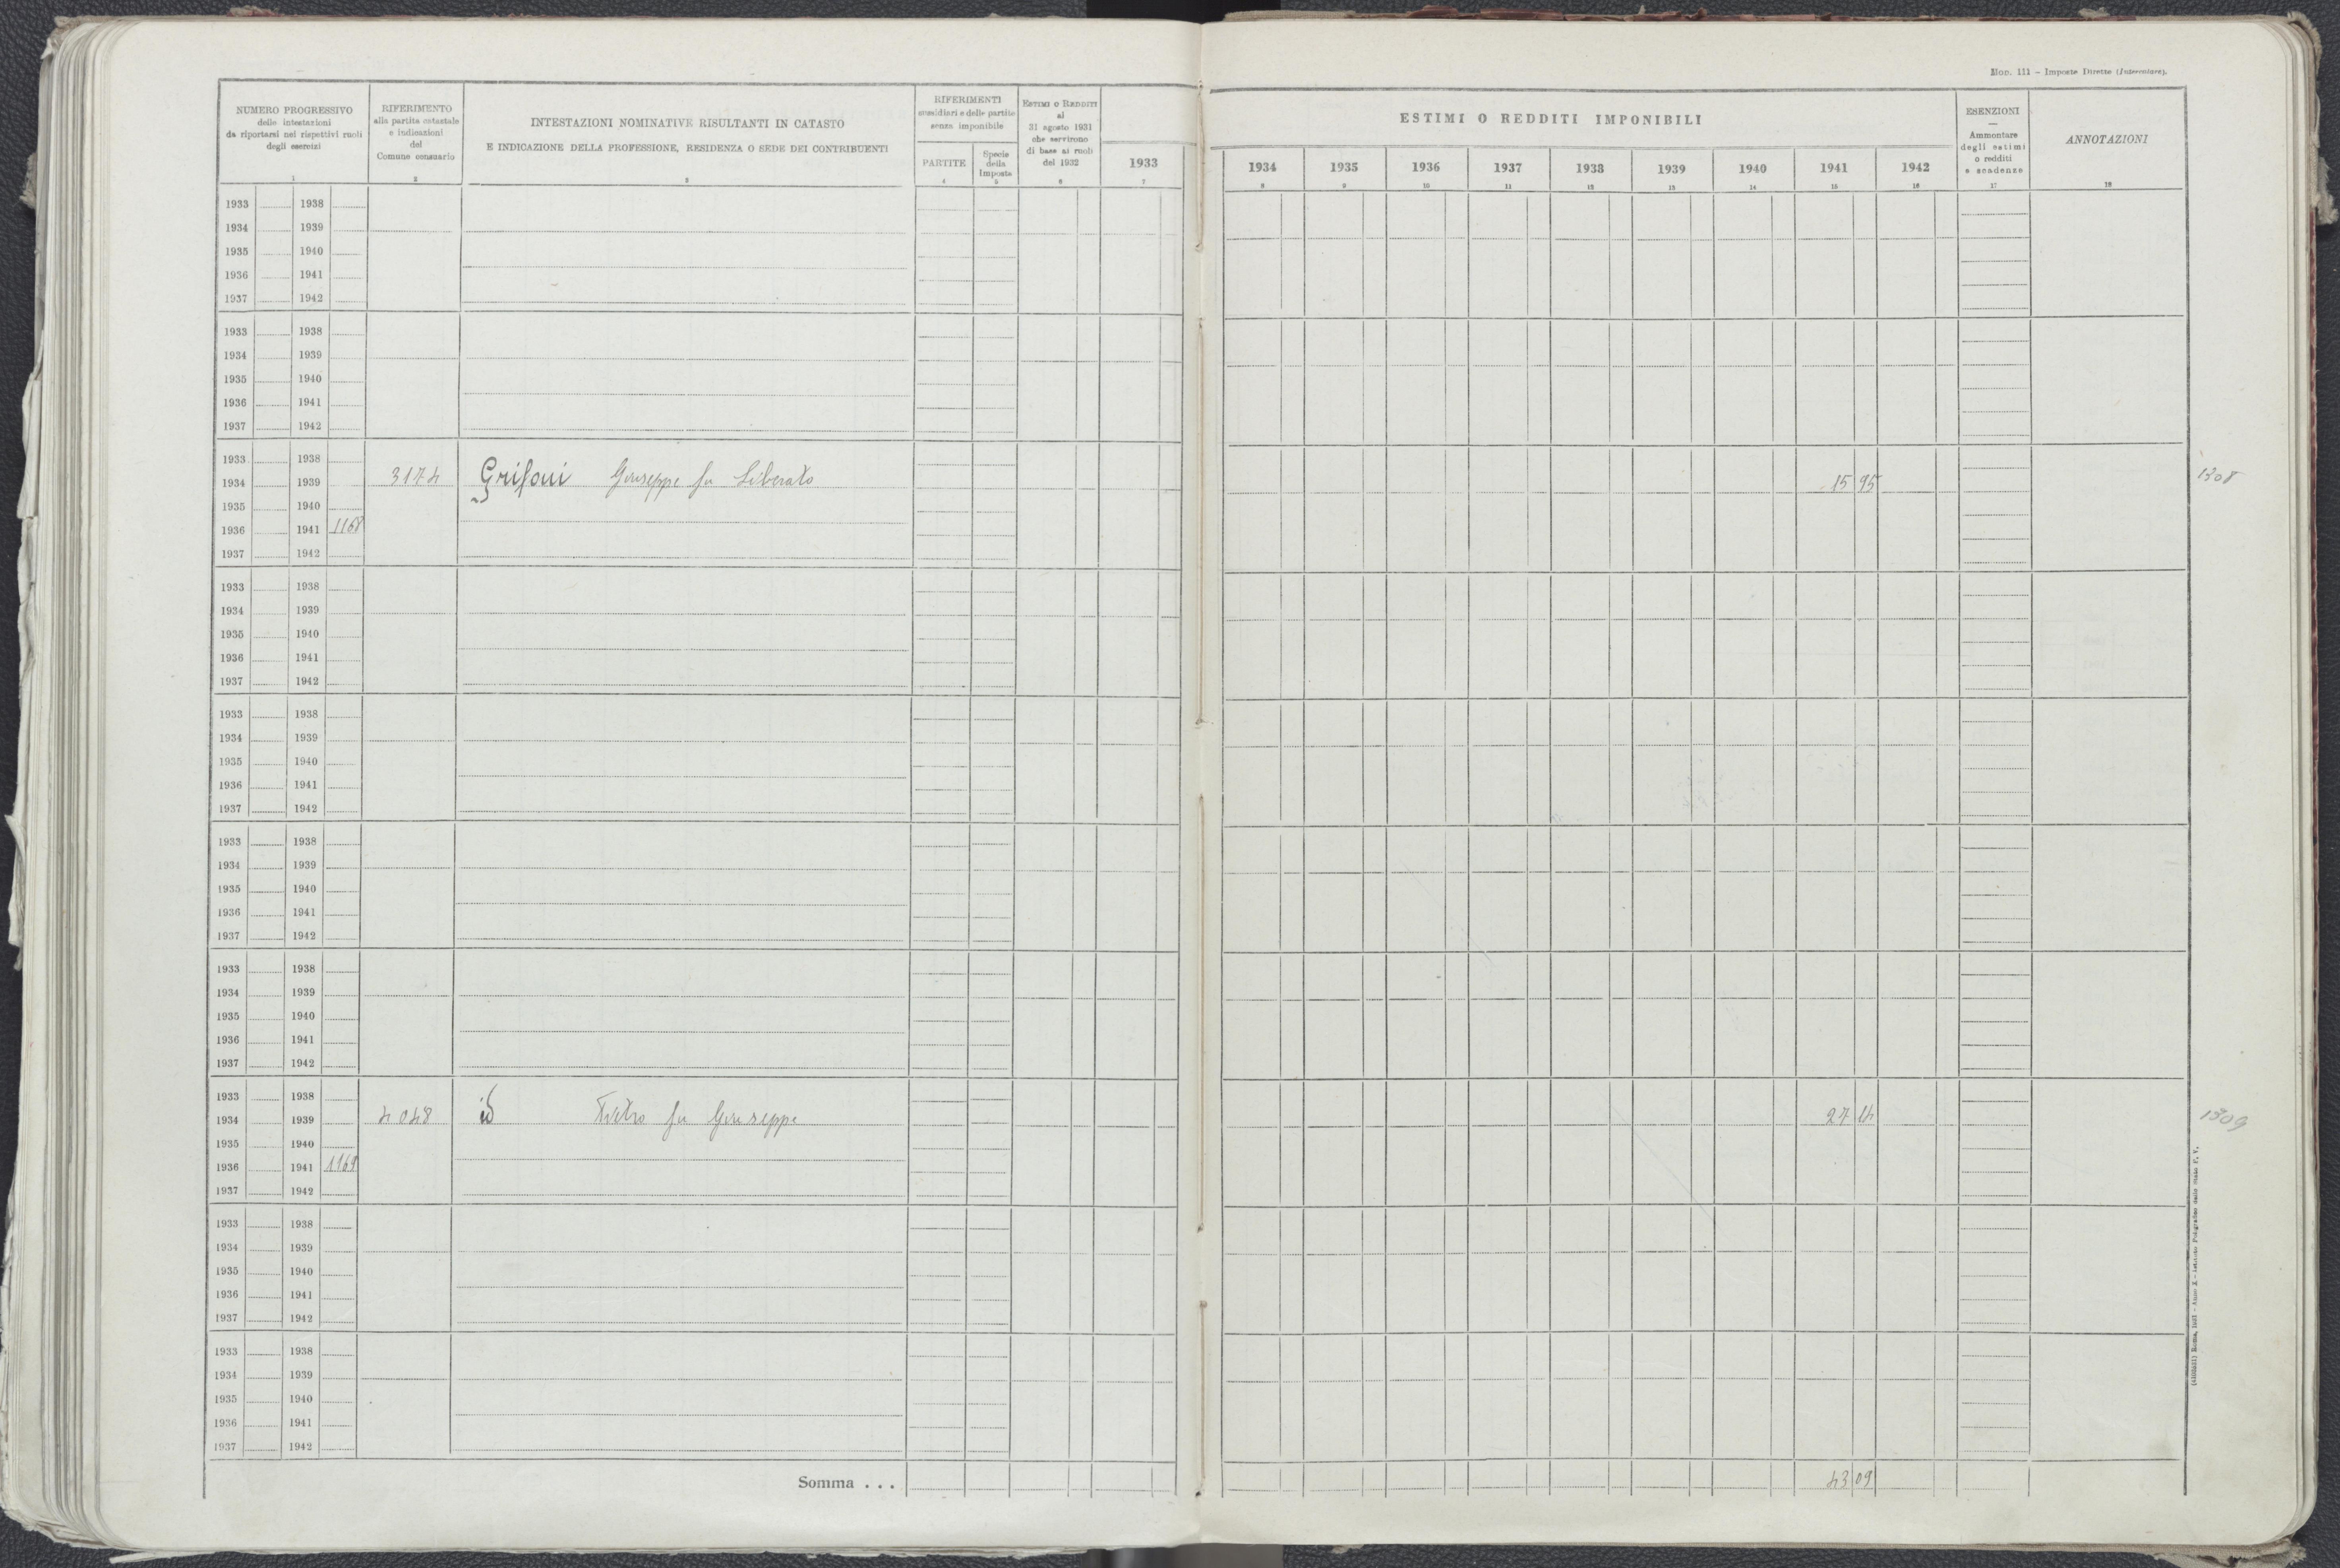 Mod. 111 – Imposte Dirette (Intercalare).
NUMERO PROGRESSIVO
delle intestazioni
da riportarsi nei rispettivi ruoli
degli esercizi
1
RIFERIMENTO
alla partita catastale
e indicazioni
del
Comune censuario
2
INTESTAZIONI NOMINATIVE RISULTANTI IN CATASTO
E INDICAZIONE DELLA PROFESSIONE, RESIDENZA O SEDE DEI CONTRIBUENTI
3
RIFERIMENTI
sussidieri e delle partite
senza imponibile
PARTITE
4
Specie
della
Imposta
5
ESTIMI O REDDITI
al
31 agosto 1931
che servirono
di base ai ruoli
del 1932
6
1933
7
ESTIMI O REDDITI IMPONIBILI
1934 1935 1936 1937 1938 1939 1940 1941 1942
8 9 10 11 12 13 14 15 16
ESENZIONI
—
Ammontare
degli estimi
o redditi
e scadenze
17
ANNOTAZIONI
18
1933 1938
1934 1939
1935 1940
1936 1941
1937 1942
1933 1938
1934 1939
1935 1940
1936 1941
1937 1942
1933 1938
1934 1939 3174 Grifoni Giuseppe fu Liberato 15 95 1308
1935 1940
1936 1941 1168
1937 1942
1933 1938
1934 1939
1935 1940
1936 1941
1937 1942
1933 1938
1934 1939
1935 1940
1936 1941
1937 1942
1933 1938
1934 1939
1935 1940
1936 1941
1937 1942
1933 1938
1934 1939
1935 1940
1936 1941
1937 1942
1933 1938
1934 1939 4048 id Pietro fu Giuseppe 27 14 1309
1935 1940
1936 1941 1169
1937 1942
1933 1938
1934 1939
1935 1940
1936 1941
1937 1942
1933 1938
1934 1939
1935 1940
1936 1941
1937 1942
Somma . . . 43 09
Roma, 1931 - Anno X - Istituto Poligrafico dello Stato P. V.